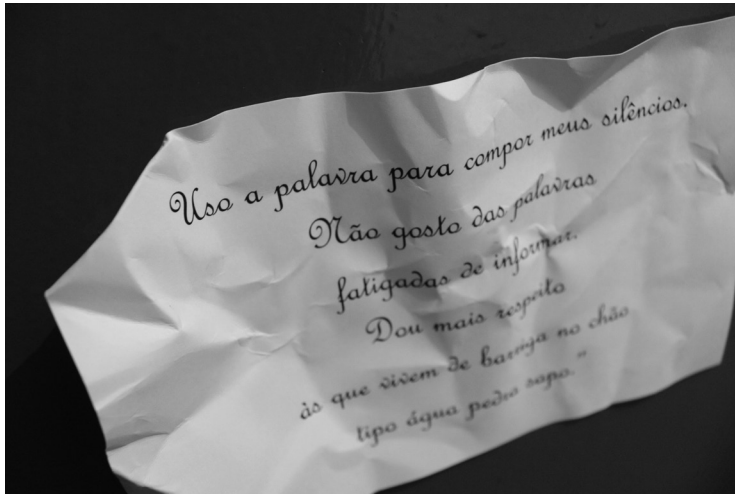 Uso a palavra para compor meus silêncios.
Não gosto das palavras
fatigadas de informar.
Dou mais respeito
às que vivem de barriga no chão
tipo água pedra sapo."